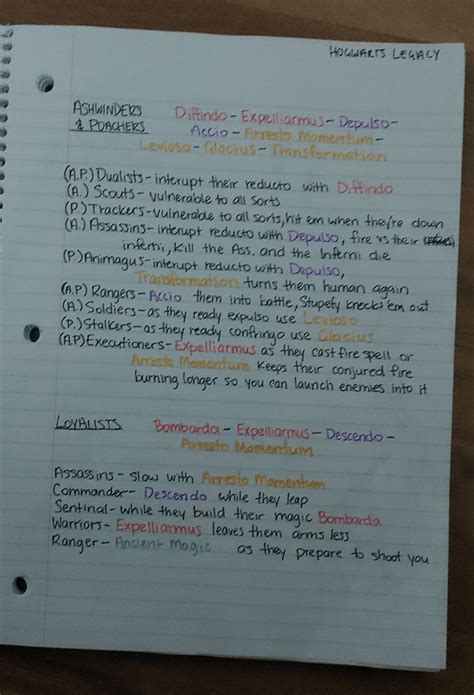 HOGWARTS LEGACY
ASHWINDERS Diffindo - Expelliarmus - Depulso -
& POACHERS Accio - Arresto Momentum -
Levioso - Glacius - Transformation
(A.P.) Dualists - interupt their reducto with Diffindo
(A.) Scouts - vulnerable to all sorts
(P.) Trackers - vulnerable to all sorts, hit em when they're down
(A.) Assassins - interupt reducto with Depulso, fire vs their
inferni, Kill the Ass. and the Inferni die
(P.) Animagus - interupt reducto with Depulso,
Transformation turns them human again
(A.P) Rangers - Accio them into battle, Stupefy knocks 'em out
(A.) Soldiers - as they ready expulso use Levioso
(P.) Stalkers - as they ready confringo use Glacius
(AP) Executioners - Expelliarmus as they cast fire spell or
Arresto Momentum Keeps their conjured fire
burning longer so you can launch enemies into it
LOYALISTS Bombarda - Expelliarmus - Descendo -
Arresto Momentum
Assassins - slow with Arresto Momentum
Commander - Descendo while they leap
Sentinal - while they build their magic Bombarda
Warriors - Expelliarmus leaves them arms less
Ranger - Ancient Magic as they prepare to shoot you